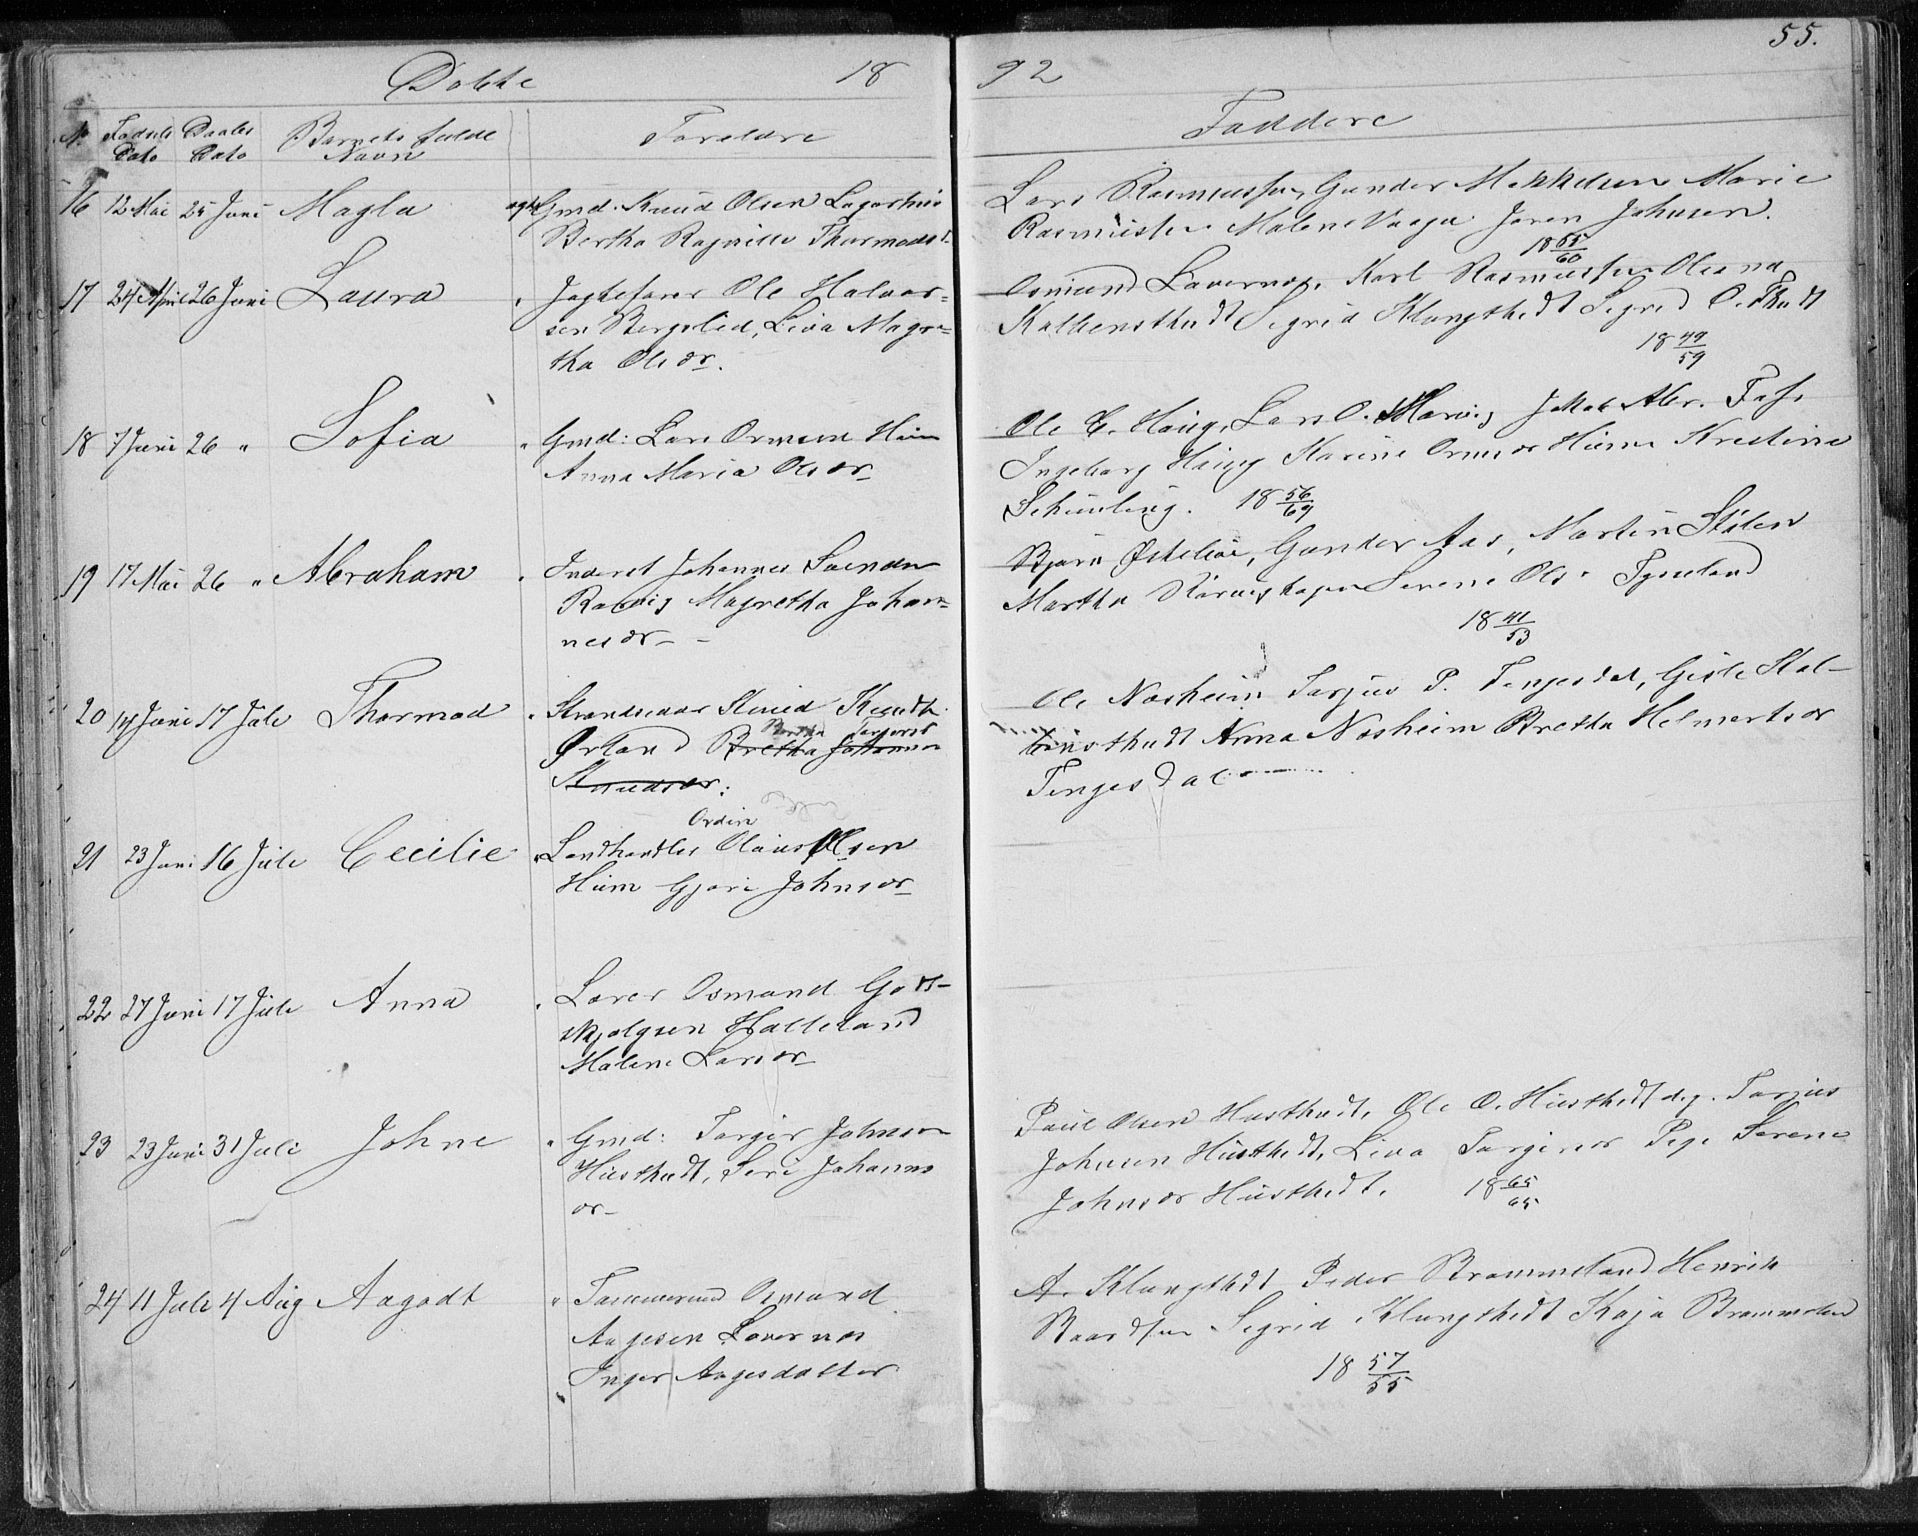 55.
Døbte 18 92
No Fødsels Dato Daabs Dato Barnets fulde Navn Forældre Faddere
16 12 Mai 25 Juni Magla Gmd. Knud Olsen
Bertha Ragnille
Lars Rasmussen, Gunder Mikkelsen Marie
Rasmussen Malene Vaage Johnsen.
18 65/60
17 24 April 26 Juni Laura " Jagtefører Ole Halvor=
sen Bergslid, Liva Magre=
tha Olsdr.
Osmund Løvernæs, Karl Rasmussen Olena
Sigrid Klungthedt Sigrid O.
18 49/59
18 7 Juni 26 " Sofia " Gmd: Lars Ormsen Hiim
Anna Maria Olsdr
Ole E. Haug, Lars O.
Ingeborg Haug Karine Ormsdr Hiim Kristine
18 56/69
19 17 Mai 26 " Abraham " Inderst Johannes Svendsen
Magretha Johan=
nesdr -
Bjørn Østebøe, Gunder Aas, Martin Stølen
Martha Serene Ols.
18 41/53
20 14 Juni 17 Juli Thormod " Strandsidder Knud Knudts.
Bertha
Ørland Bretha
Knudsdr:
Ole Næsheim Torjus P. Tengesdal, Gisle
Anna Næsheim Bretha Helmertsdr
Tengesdal
Ordin
21 23 Juni 16 Juli Cecilie " Landhandler Olaus Olsen
Hiim Gjøri Johnsdr
22 27 Juni 17 Juli Anna " Lærer Osmund God-
skjolgsen Halleland
Malene Larsdr
23 23 Juni 31 Juli Johne " Gmd: Torger Johnsen
Husthedt, Seri Johanns
dr-
Paul Olsen Husthedt, Ole O. Husthedt d.y. Torjus
Johnsen Husthedt, Liva Torgersdr Pige Serene
Johnsdr Husthedt. 18 65/65
24 11 Juli 4 Aug Aagodt " Tømmermd Osmund
Aagesen Løvernæs
Inger Aagesdatter
A. Klungthedt Peder Brommeland Henrik
Baardsen Sigrid Klungthedt Kaja Brommeland
18 57/55